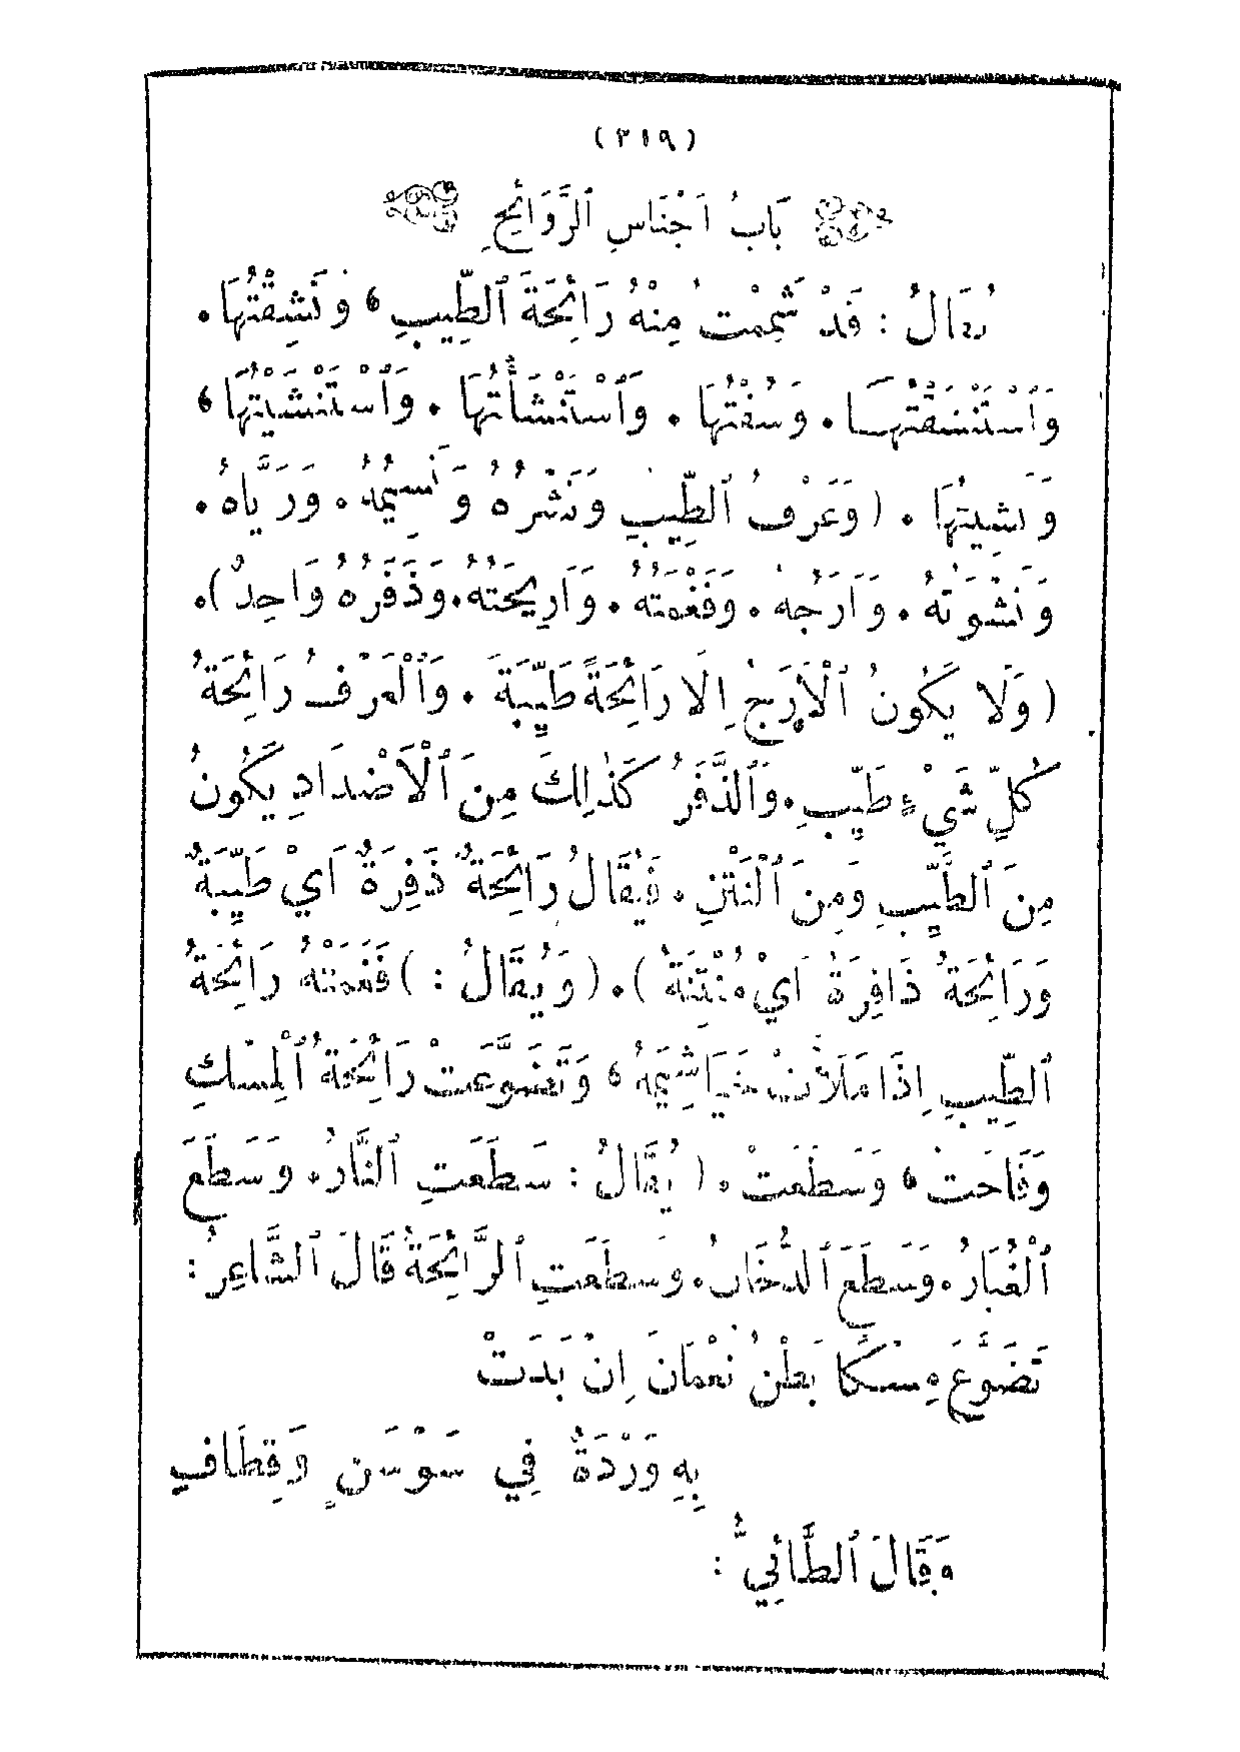 (٢١٩)
بَابُ اَجْنَاسِ ٱلرَّوَائِحِ
يُقَالُ : قَدْ شَمِمْتُ مِنْهُ رَائِحَةَ ٱلطِّيبِ، وَنَشِقْتُهَا.
وَٱسْتَنْشَقْتُهَا. وَسُفْتُهَا. وَٱسْتَنْشَأْتُهَا. وَٱسْتَنْشَيْتُهَا،
وَنَشِيتُهَا. (وَعَرْفُ ٱلطِّيبِ وَنَشْرُهُ وَنَسِيمُهُ. وَرَيَّاهُ.
وَنَشْوَتُهُ. وَاَرَجُهُ. وَفَغْمَتُهُ. وَاَرِيحَتُهُ. وَذَفَرُهُ وَاحِدٌ).
(وَلَا يَكُونُ ٱلْاَرَجُ اِلَّا رَائِحَةً طَيِّبَةً. وَٱلْعَرْفُ رَائِحَةُ
كُلِّ شَيْءٍ طَيِّبٍ. وَٱلذَّفَرُ كَذٰلِكَ مِنَ ٱلْاَضْدَادِ يَكُونُ
مِنَ ٱلطَّيِّبِ وَمِنَ ٱلنَّتْنِ. فَيُقَالُ رَائِحَةٌ ذَفِرَةٌ اَيْ طَيِّبَةٌ
وَرَائِحَةٌ ذَافِرَةٌ اَيْ مُنْتِنَةٌ). (وَيُقَالُ :) فَغَمَتْهُ رَائِحَةُ
ٱلطِّيبِ اِذَا مَلَأَتْ خَيَاشِيمَهُ، وَتَضَوَّعَتْ رَائِحَةُ ٱلْمِسْكِ
وَفَاحَتْ، وَسَطَعَتْ. (يُقَالُ : سَطَعَتِ ٱلنَّارُ. وَسَطَعَ
ٱلْغُبَارُ. وَسَطَعَ ٱلدُّخَانُ. وَسَطَعَتِ ٱلرَّائِحَةُ قَالَ ٱلشَّاعِرُ :
تَضَوَّعَ مِسْكًا بَطْنُ نَعْمَانَ اِنْ بَدَتْ
بِهِ وَرْدَةٌ فِي سَوْسَنٍ وَقِطَافِ
وَقَالَ ٱلطَّائِيُّ :